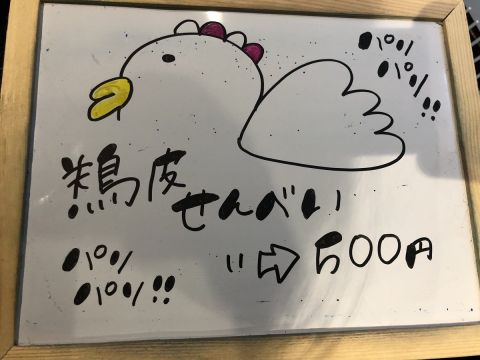 パリ
パリ!!
鶏皮
せんべい
パリ
パリ!!
〃⇨500円